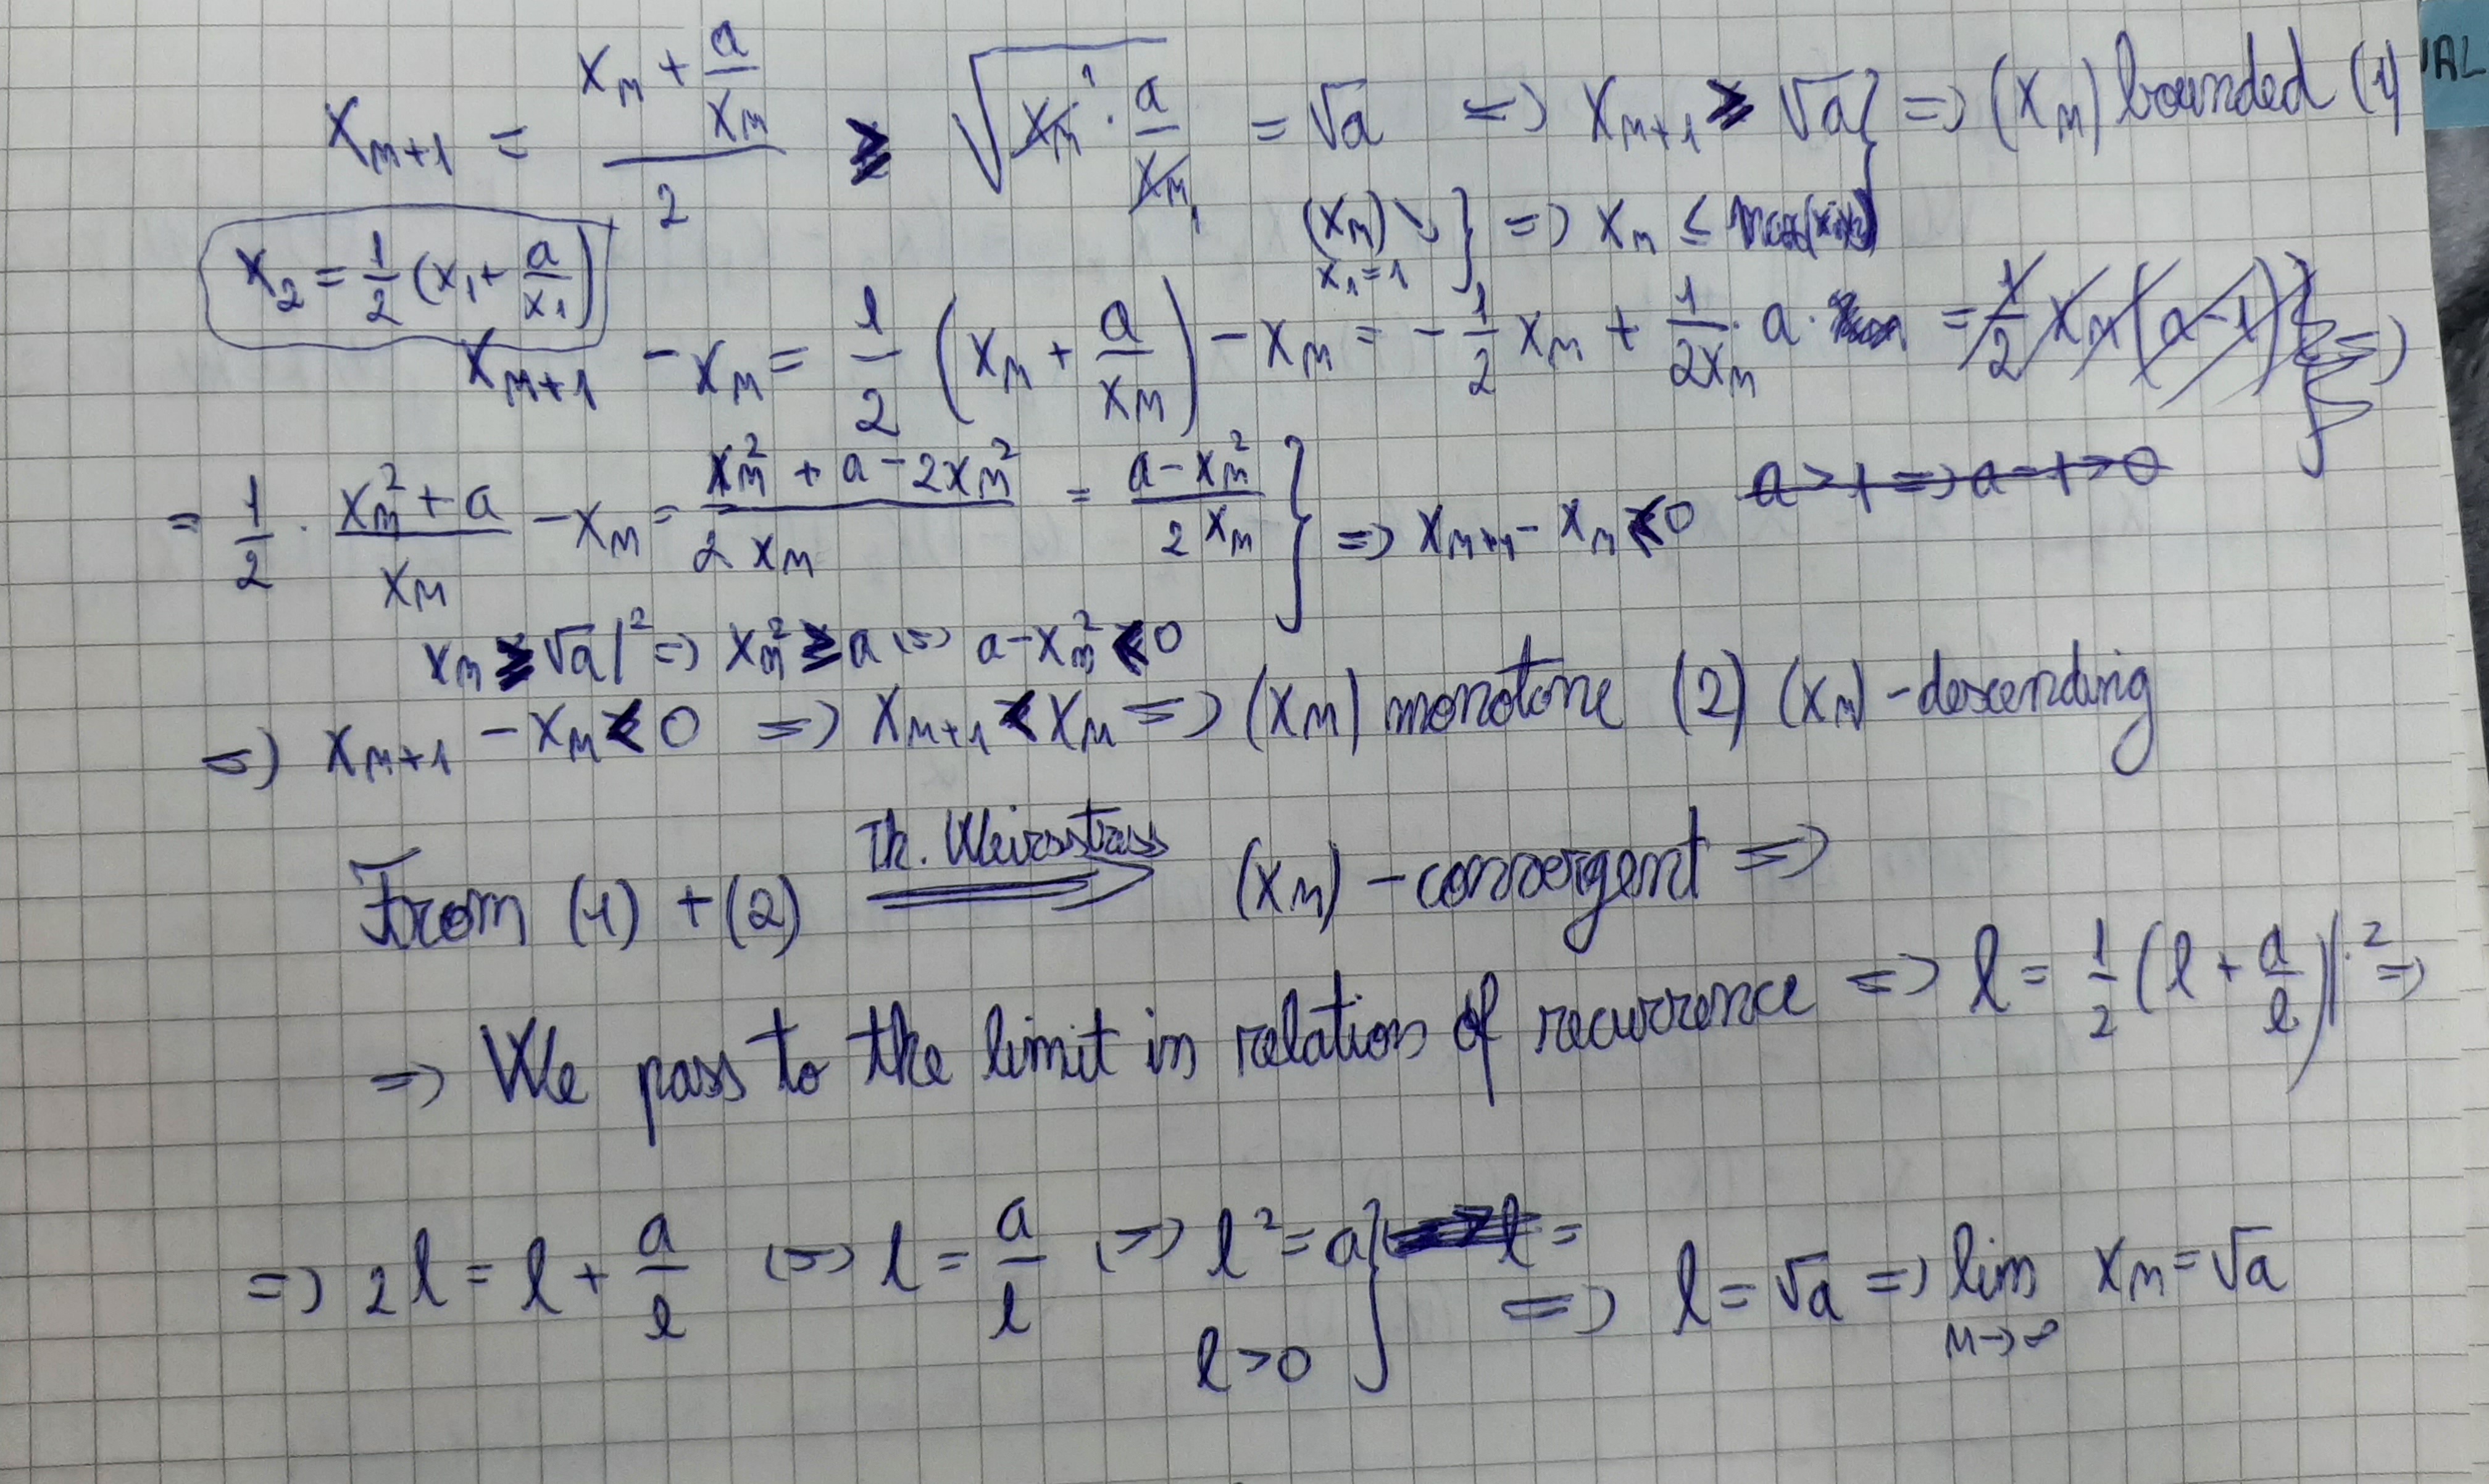 x_{n+1} = \frac{x_n + \frac{a}{x_n}}{2} ≥ \sqrt{x_n · \frac{a}{x_n}} = √a => x_{n+1} ≥ √a } => (x_n) bounded (1)
VAL
(x_n) ↘ x_1 = 1 } => x_n ≤ max(x_1, x_2)
x_2 = \frac{1}{2} (x_1 + \frac{a}{x_1})
x_{n+1} - x_n = \frac{1}{2} (x_n + \frac{a}{x_n}) - x_n = -\frac{1}{2} x_n + \frac{1}{2x_n} · a · = \frac{1}{2} x_n (a-1) } =>
a > 1 => a - 1 > 0
= \frac{1}{2} · \frac{x_n^2 + a}{x_n} - x_n = \frac{x_n^2 + a - 2x_n^2}{2 x_n} = \frac{a - x_n^2}{2 x_n} } => x_{n+1} - x_n ≤ 0
x_n ≥ √a |^2 => x_n^2 ≥ a <=> a - x_n^2 ≤ 0
=> x_{n+1} - x_n ≤ 0 => x_{n+1} ≤ x_n => (x_n) monotone (2) (x_n) - descending
From (1) + (2) \xRightarrow{Th. Weirsstrass} (x_n) - convergent =>
=> We pass to the limit in relation of recurrence => l = \frac{1}{2} (l + \frac{a}{l}) |· 2 =>
=> 2l = l + \frac{a}{l} <=> l = \frac{a}{l} <=> l^2 = a } l =
l > 0 } => l = √a => \lim_{n→∞} x_n = √a